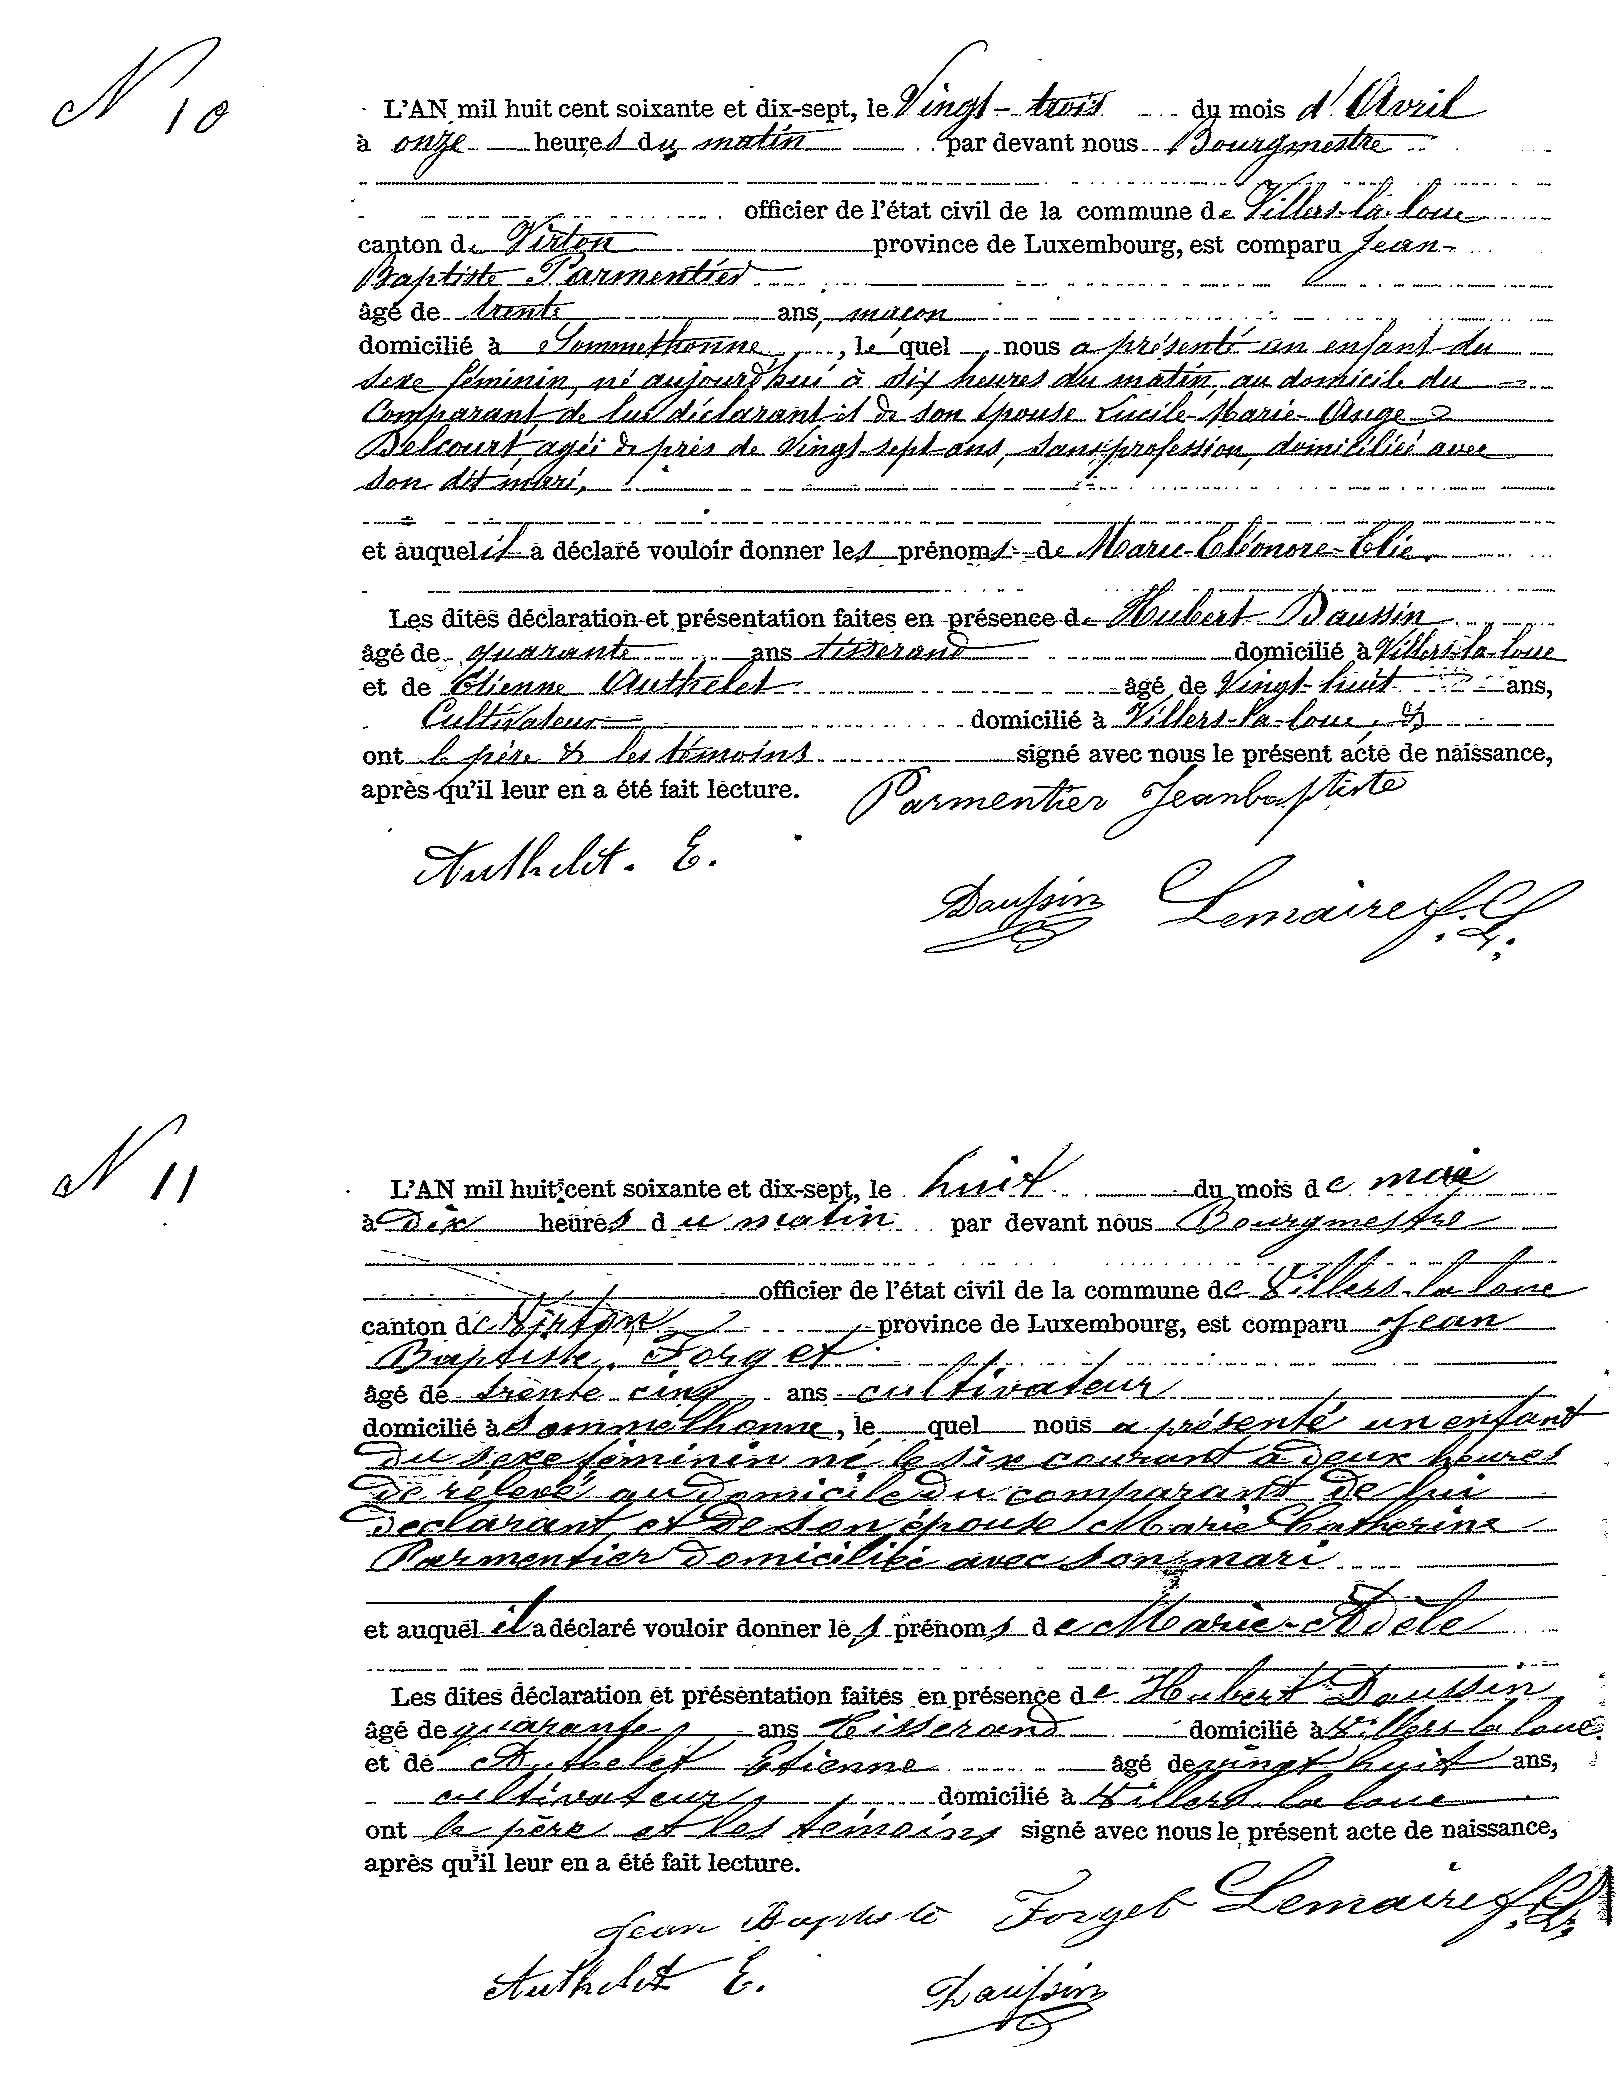 N 10
L'AN mil huit cent soixante et dix-sept, le Vingt-trois du mois d'Avril
à onze heures du matin par devant nous Bourgmestre
officier de l'état civil de la commune de Villers-la-loue
canton de Virton province de Luxembourg, est comparu Jean-
Baptiste Parmentier
âgé de trente ans, maçon
domicilié à Sommethonne, le quel nous a présenté un enfant du
sexe féminin, né aujourd'hui à dix heures du matin, au domicile du
Comparant, de lui déclarant et de son épouse Lucile-Marie-Ange
Delcourt, agée de près de Vingt-sept ans, sans profession, domiciliée avec
son dit mari,
et auquel il a déclaré vouloir donner les prénoms de Marie-Eléonore-Elie.
Les dites déclaration et présentation faites en présence de Hubert Daussin
âgé de quarante ans tisserand domicilié à Villers-la-loue
et de Etienne Authelet âgé de Vingt-huit ans,
Cultivateur domicilié à Villers-la-loue, &
ont le père & les témoins signé avec nous le présent acte de naissance,
après qu'il leur en a été fait lecture. Parmentier Jeanbaptiste
Authelet. E.
Daussin Lemaire
N 11
L'AN mil huit cent soixante et dix-sept, le huit du mois de mai
à dix heures du matin par devant nous Bourgmestre
officier de l'état civil de la commune de Villers-la loue
canton de Virton province de Luxembourg, est comparu Jean
Baptiste Forget
âgé de trente cinq ans cultivateur
domicilié à Sommethonne, le quel nous a présenté un enfant
du sexe féminin né le six courant à deux heures
de relevé au domicile du comparant de lui
declarant et de son épouse Marie Catherine
Parmentier domiciliée avec son mari
et auquel il a déclaré vouloir donner les prénoms de Marie-Adèle
Les dites déclaration et présentation faites en présence de Hubert Daussin
âgé de quarante ans tisserand domicilié à Villers la loue
et de Authelet Etienne âgé de vingt huit ans,
cultivateur domicilié à Villers-la loue
ont le père et les témoins signé avec nous le présent acte de naissance,
après qu'il leur en a été fait lecture.
Jean Baptiste Forget Lemaire
Authelet E. Daussin